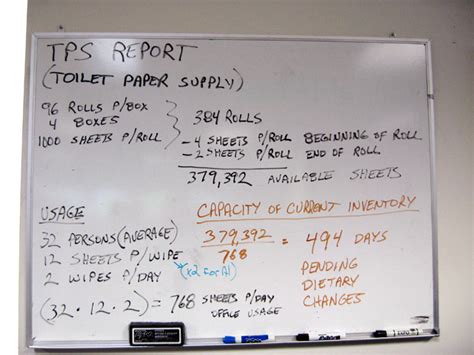 TPS REPORT
(TOILET PAPER SUPPLY)
96 ROLLS P/BOX
4 BOXES
1000 SHEETS P/ROLL
384 ROLLS
- 4 SHEETS P/ROLL BEGINNING OF ROLL
- 2 SHEETS P/ROLL END OF ROLL
379,392 AVAILABLE SHEETS
USAGE
32 PERSONS (AVERAGE)
12 SHEETS P/WIPE
2 WIPES P/DAY
(x2 for Al)
(32 · 12 · 2) = 768 SHEETS P/DAY
OFFICE USAGE
CAPACITY OF CURRENT INVENTORY
379,392
768
= 494 DAYS
PENDING
DIETARY
CHANGES